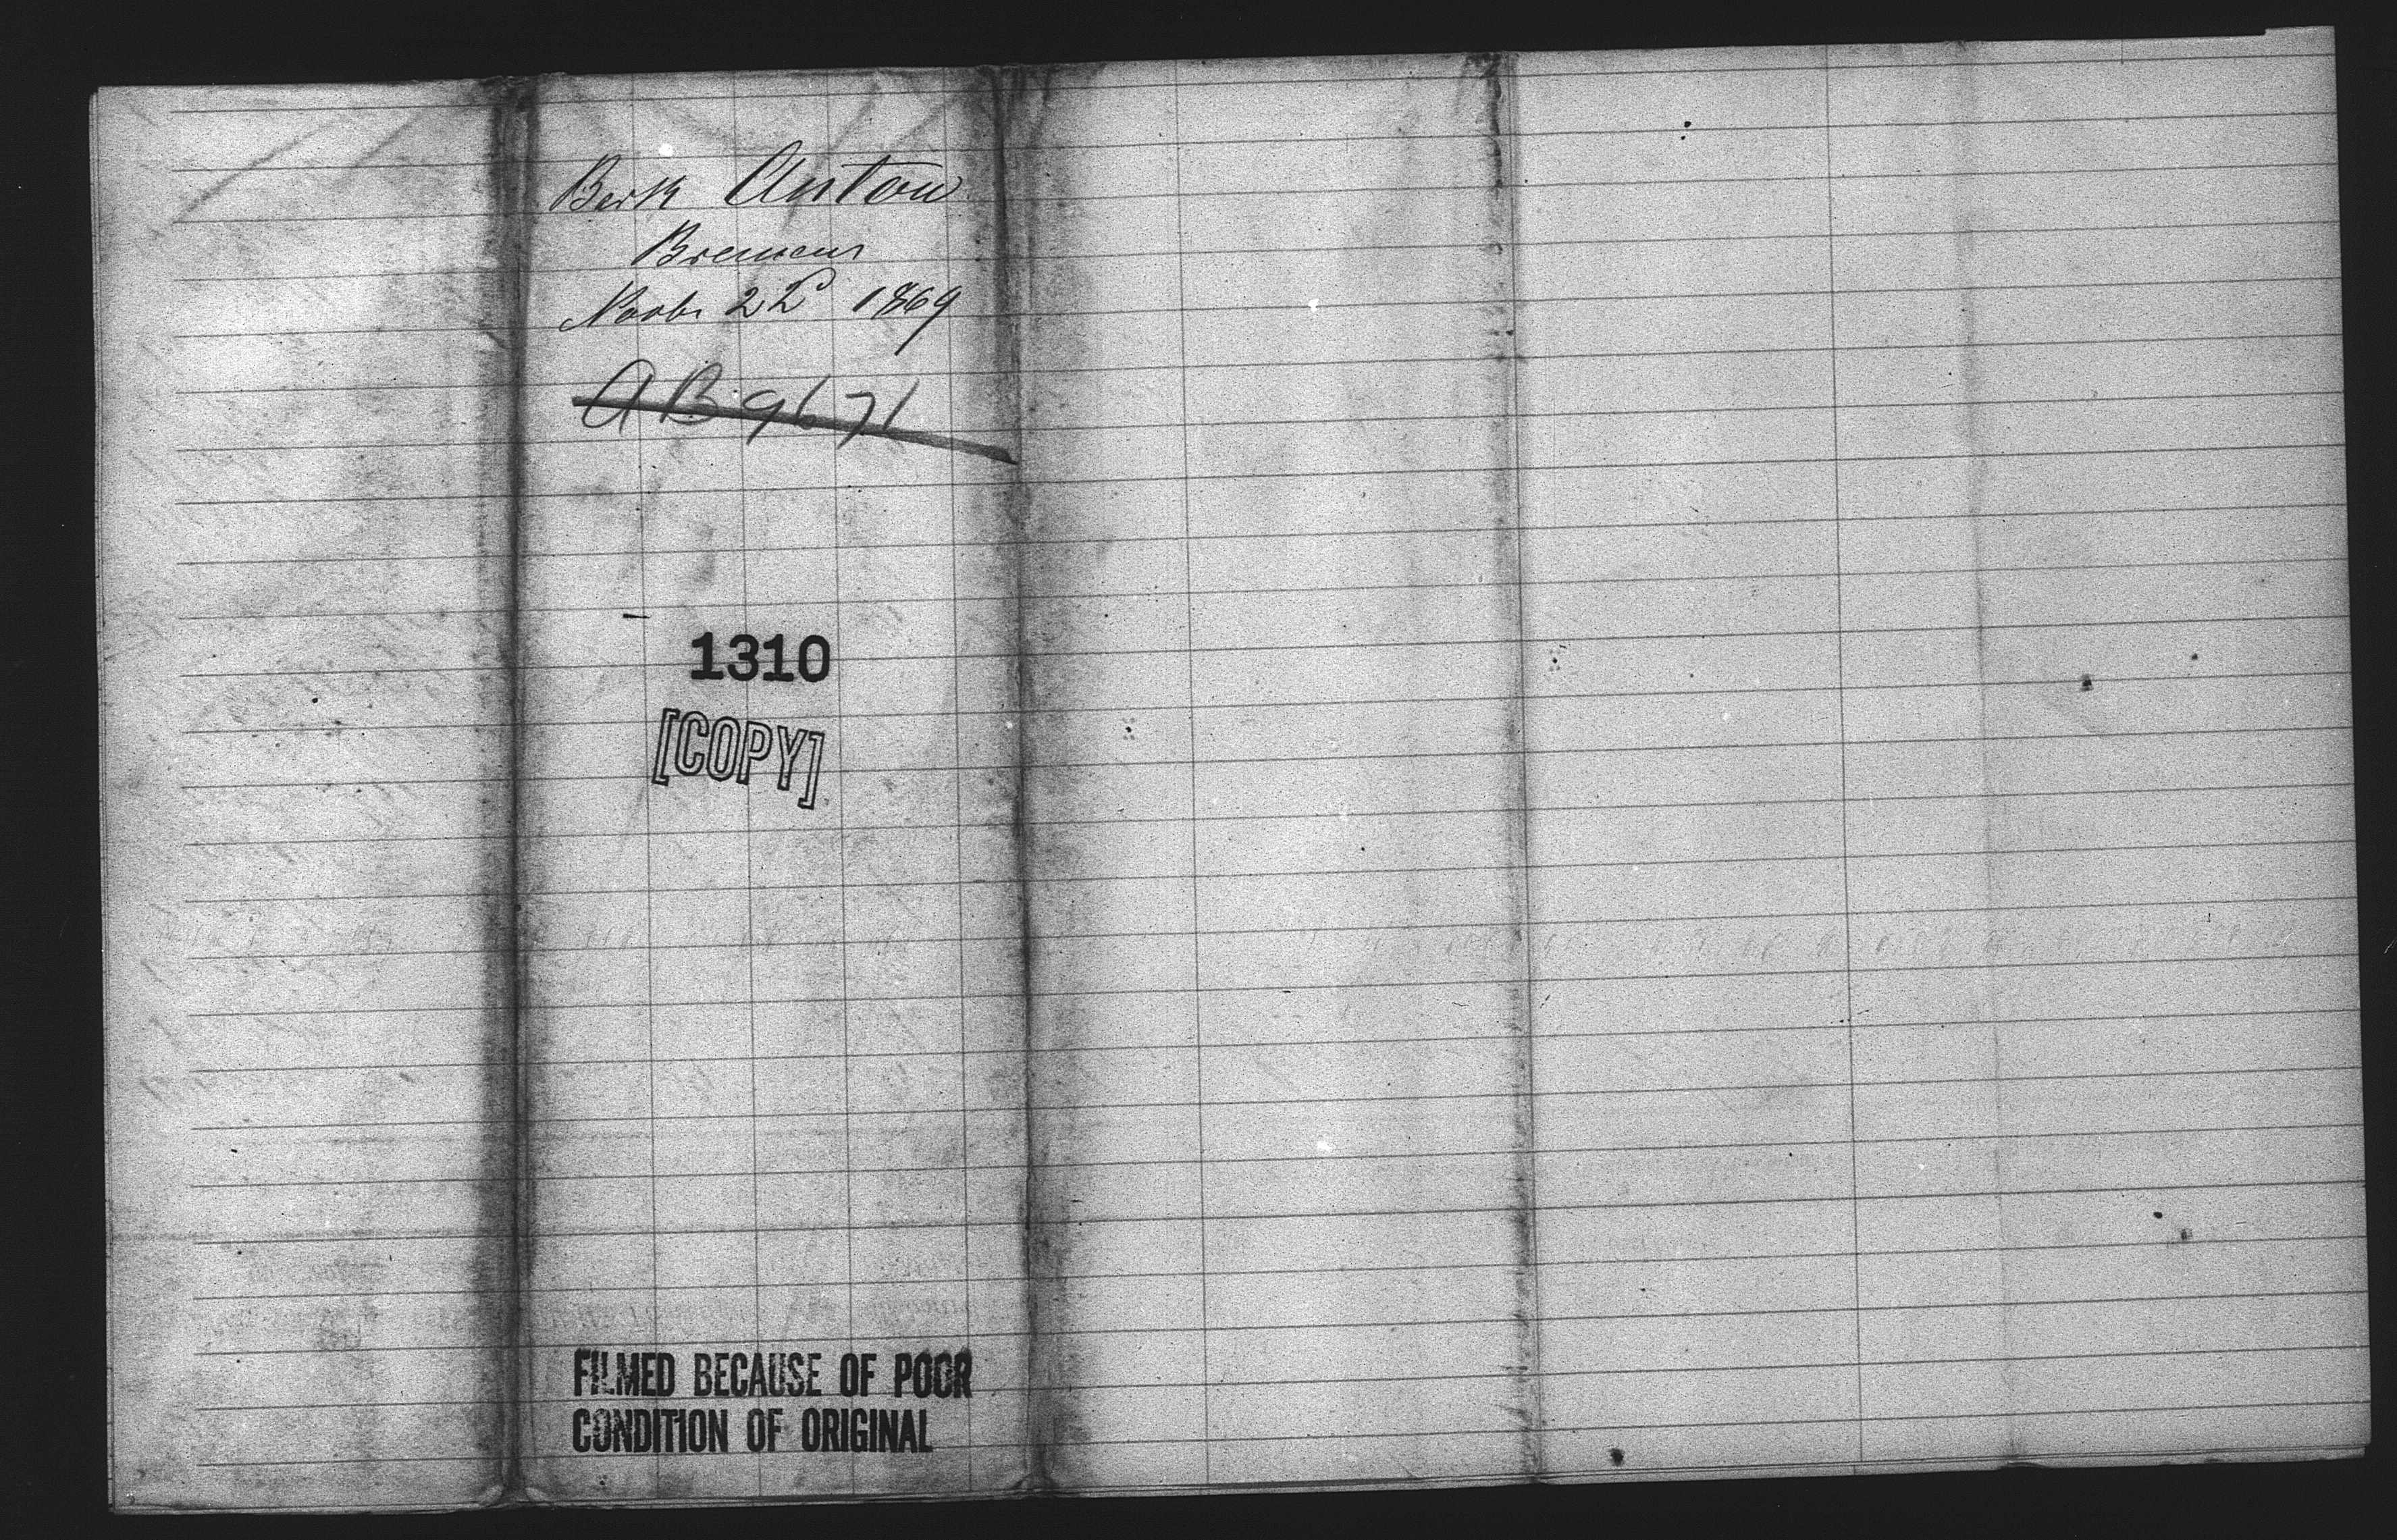 Bark Anton
Bremen
Novbr 22d 1869
AB 9671
1310
[COPY]
FILMED BECAUSE OF POOR
CONDITION OF ORIGINAL